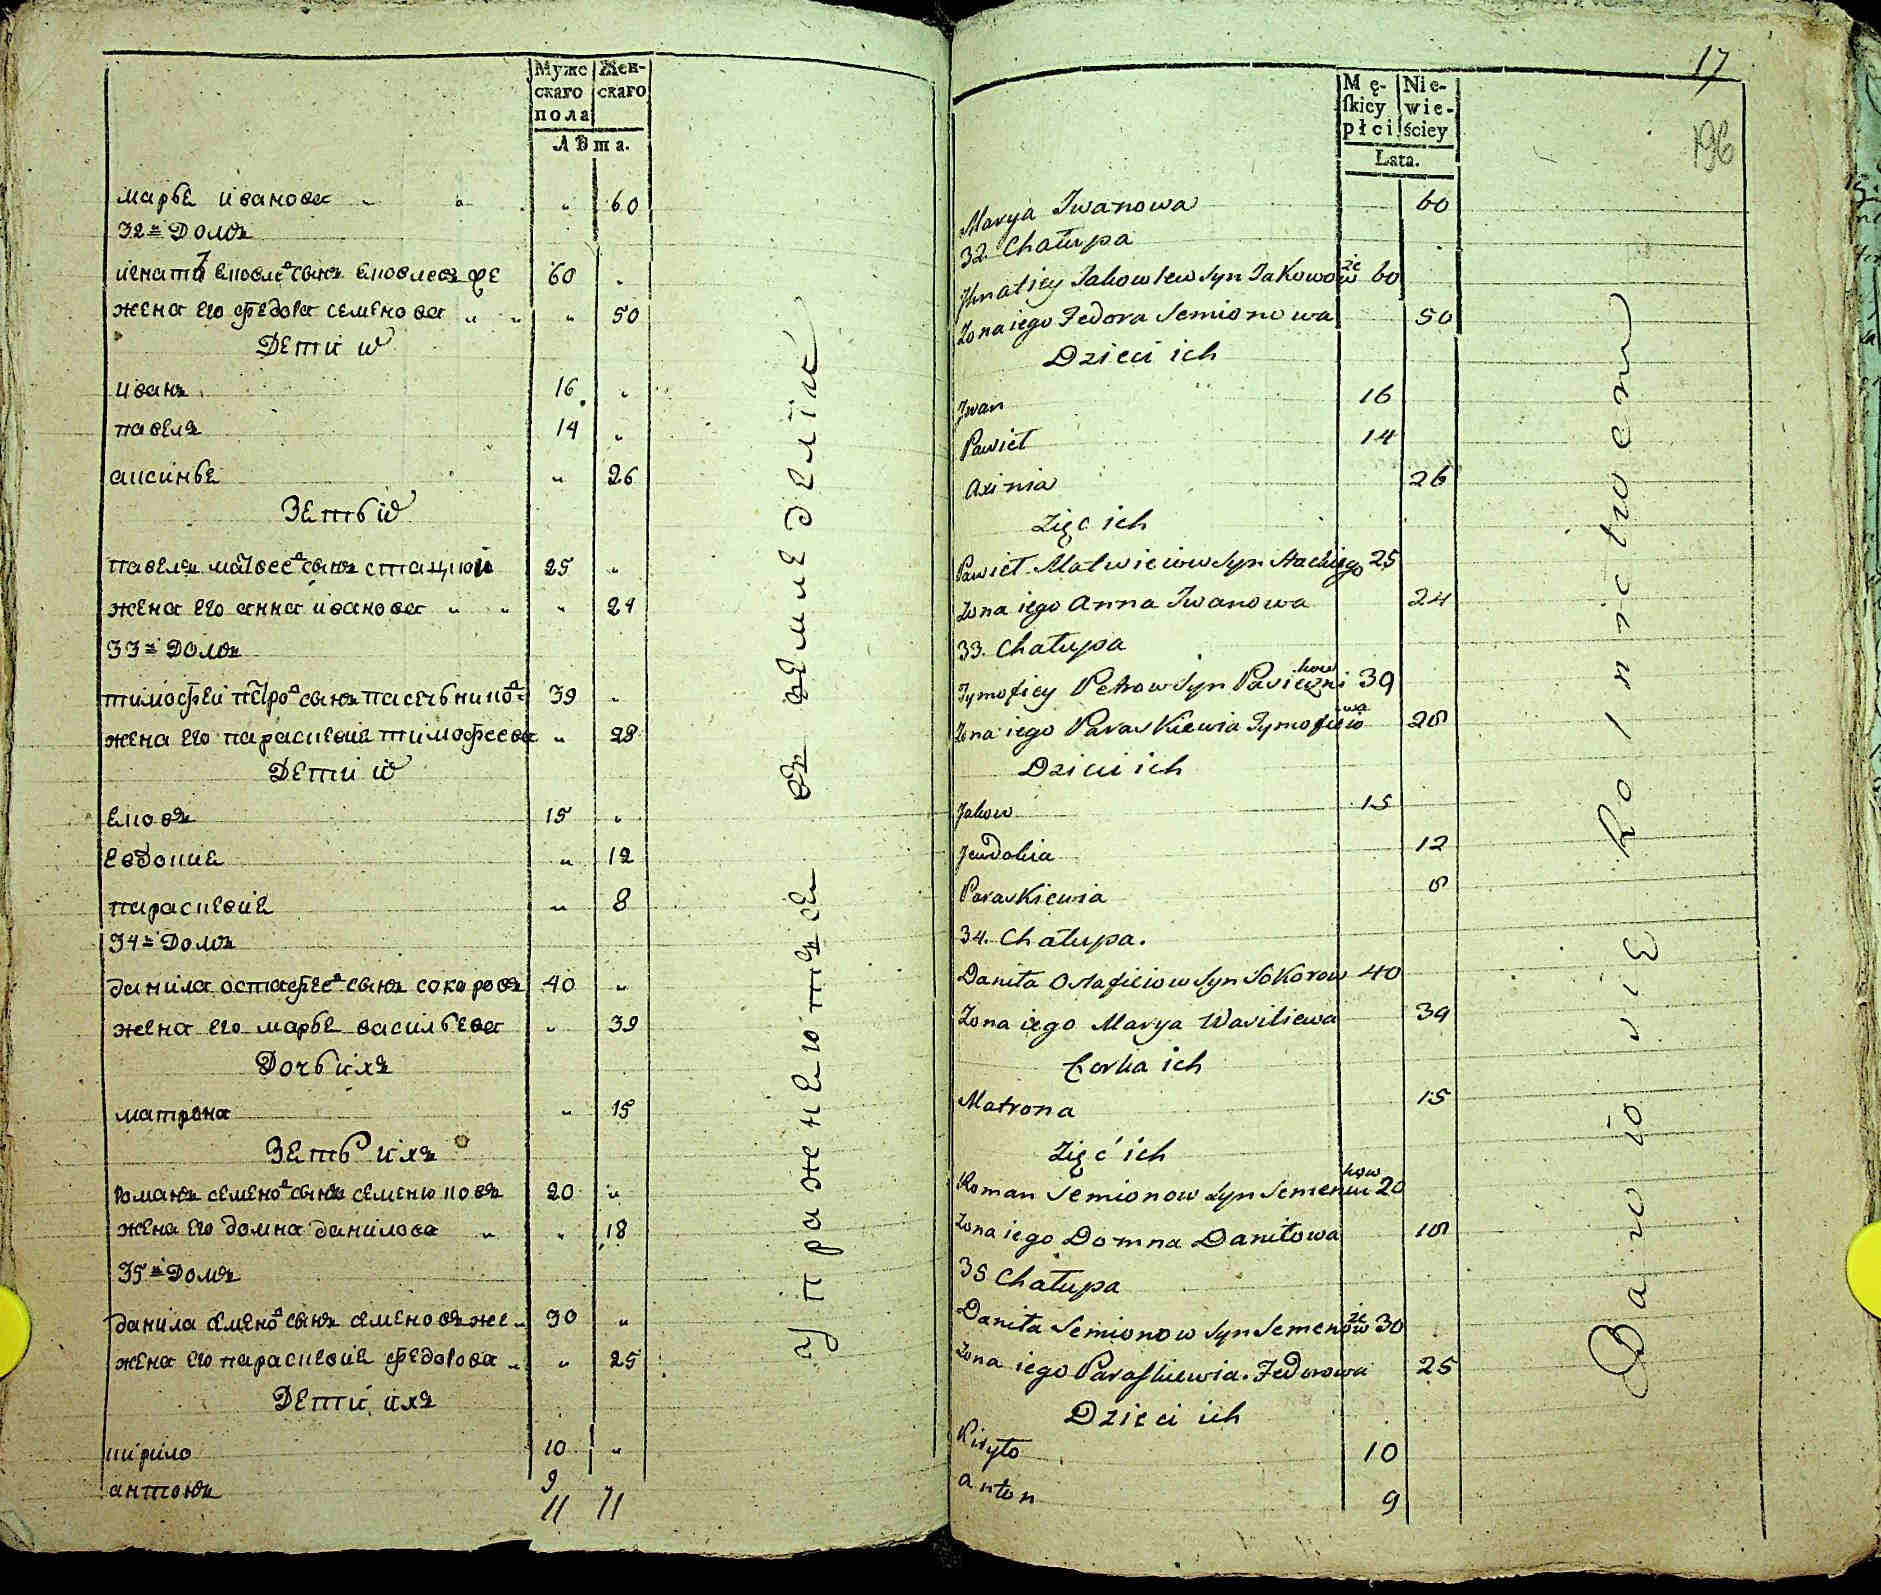 Муже
скаго
пола
Жен-
скаго
Лѣта.
марья иванова " " " 60
32й Домъ
игнатъ яковлевъ сынъ яковлевъ же 60 "
жена его федора семенова " " " 50
Дети и
иванъ 16 "
павелъ 14 "
аксинья " 26
Зять и
павелъ матвеевъ сынъ стацкой 25 "
жена его анна иванова " " " 24
33й Домъ
тимофей петровъ сынъ пасечниковъ 39 "
жена его параскевия тимофеева " 28
Дети и
яковъ 15 "
евдокия " 12
параскевия " 8
34й Домъ
данила остафеевъ сынъ сокоровъ 40 "
жена его марья васильева " 39
Дочь ихъ
матрена " 15
Зять ихъ
романъ семеновъ сынъ семенюковъ 20 "
жена его домна данилова " " 18
35й Домъ
данила семеновъ сынъ семеновъ же " 30 "
жена его параскевия федорова " " 25
Дети ихъ
кирило 10 "
антонъ 9
11 11
упражняются въ земледелии
17
196
Mę-
skiey
płci
Nie-
wie-
ściey
Lata.
Marya Iwanowa 60
32. Chałupa
Ihnatiey Jakowlew Syn Jakowow że 60
Żona iego Fedora Semionowa 50
Dzieci ich
Iwan 16
Pawieł 14
Axinia 26
Zięc ich
Pawieł Matwieiow Syn Stackiego 25
Żona iego Anna Iwanowa 24
33. Chałupa
Tymofiey Petrow Syn Pasiecznikow 39
Żona iego Paraskiewia Tymofieiowa 28
Dzieci ich
Jakow 15
Jewdokia 12
Paraskiewia 8
34. Chałupa.
Daniła Ostafieiow Syn Sokorow 40
Żona iego Marya Wasiliewa 39
Corka ich
Matrona 15
Zięć ich
Roman Semionow Syn Semeniukow 20
Żona iego Domna Daniłowa 18
35 Chałupa
Daniła Semionow Syn Semenow że 30
Żona iego Paraskiewia Fedorowa 25
Dzieci ich
Kiryło 10
Anton 9
Bawią się Rolnictwem